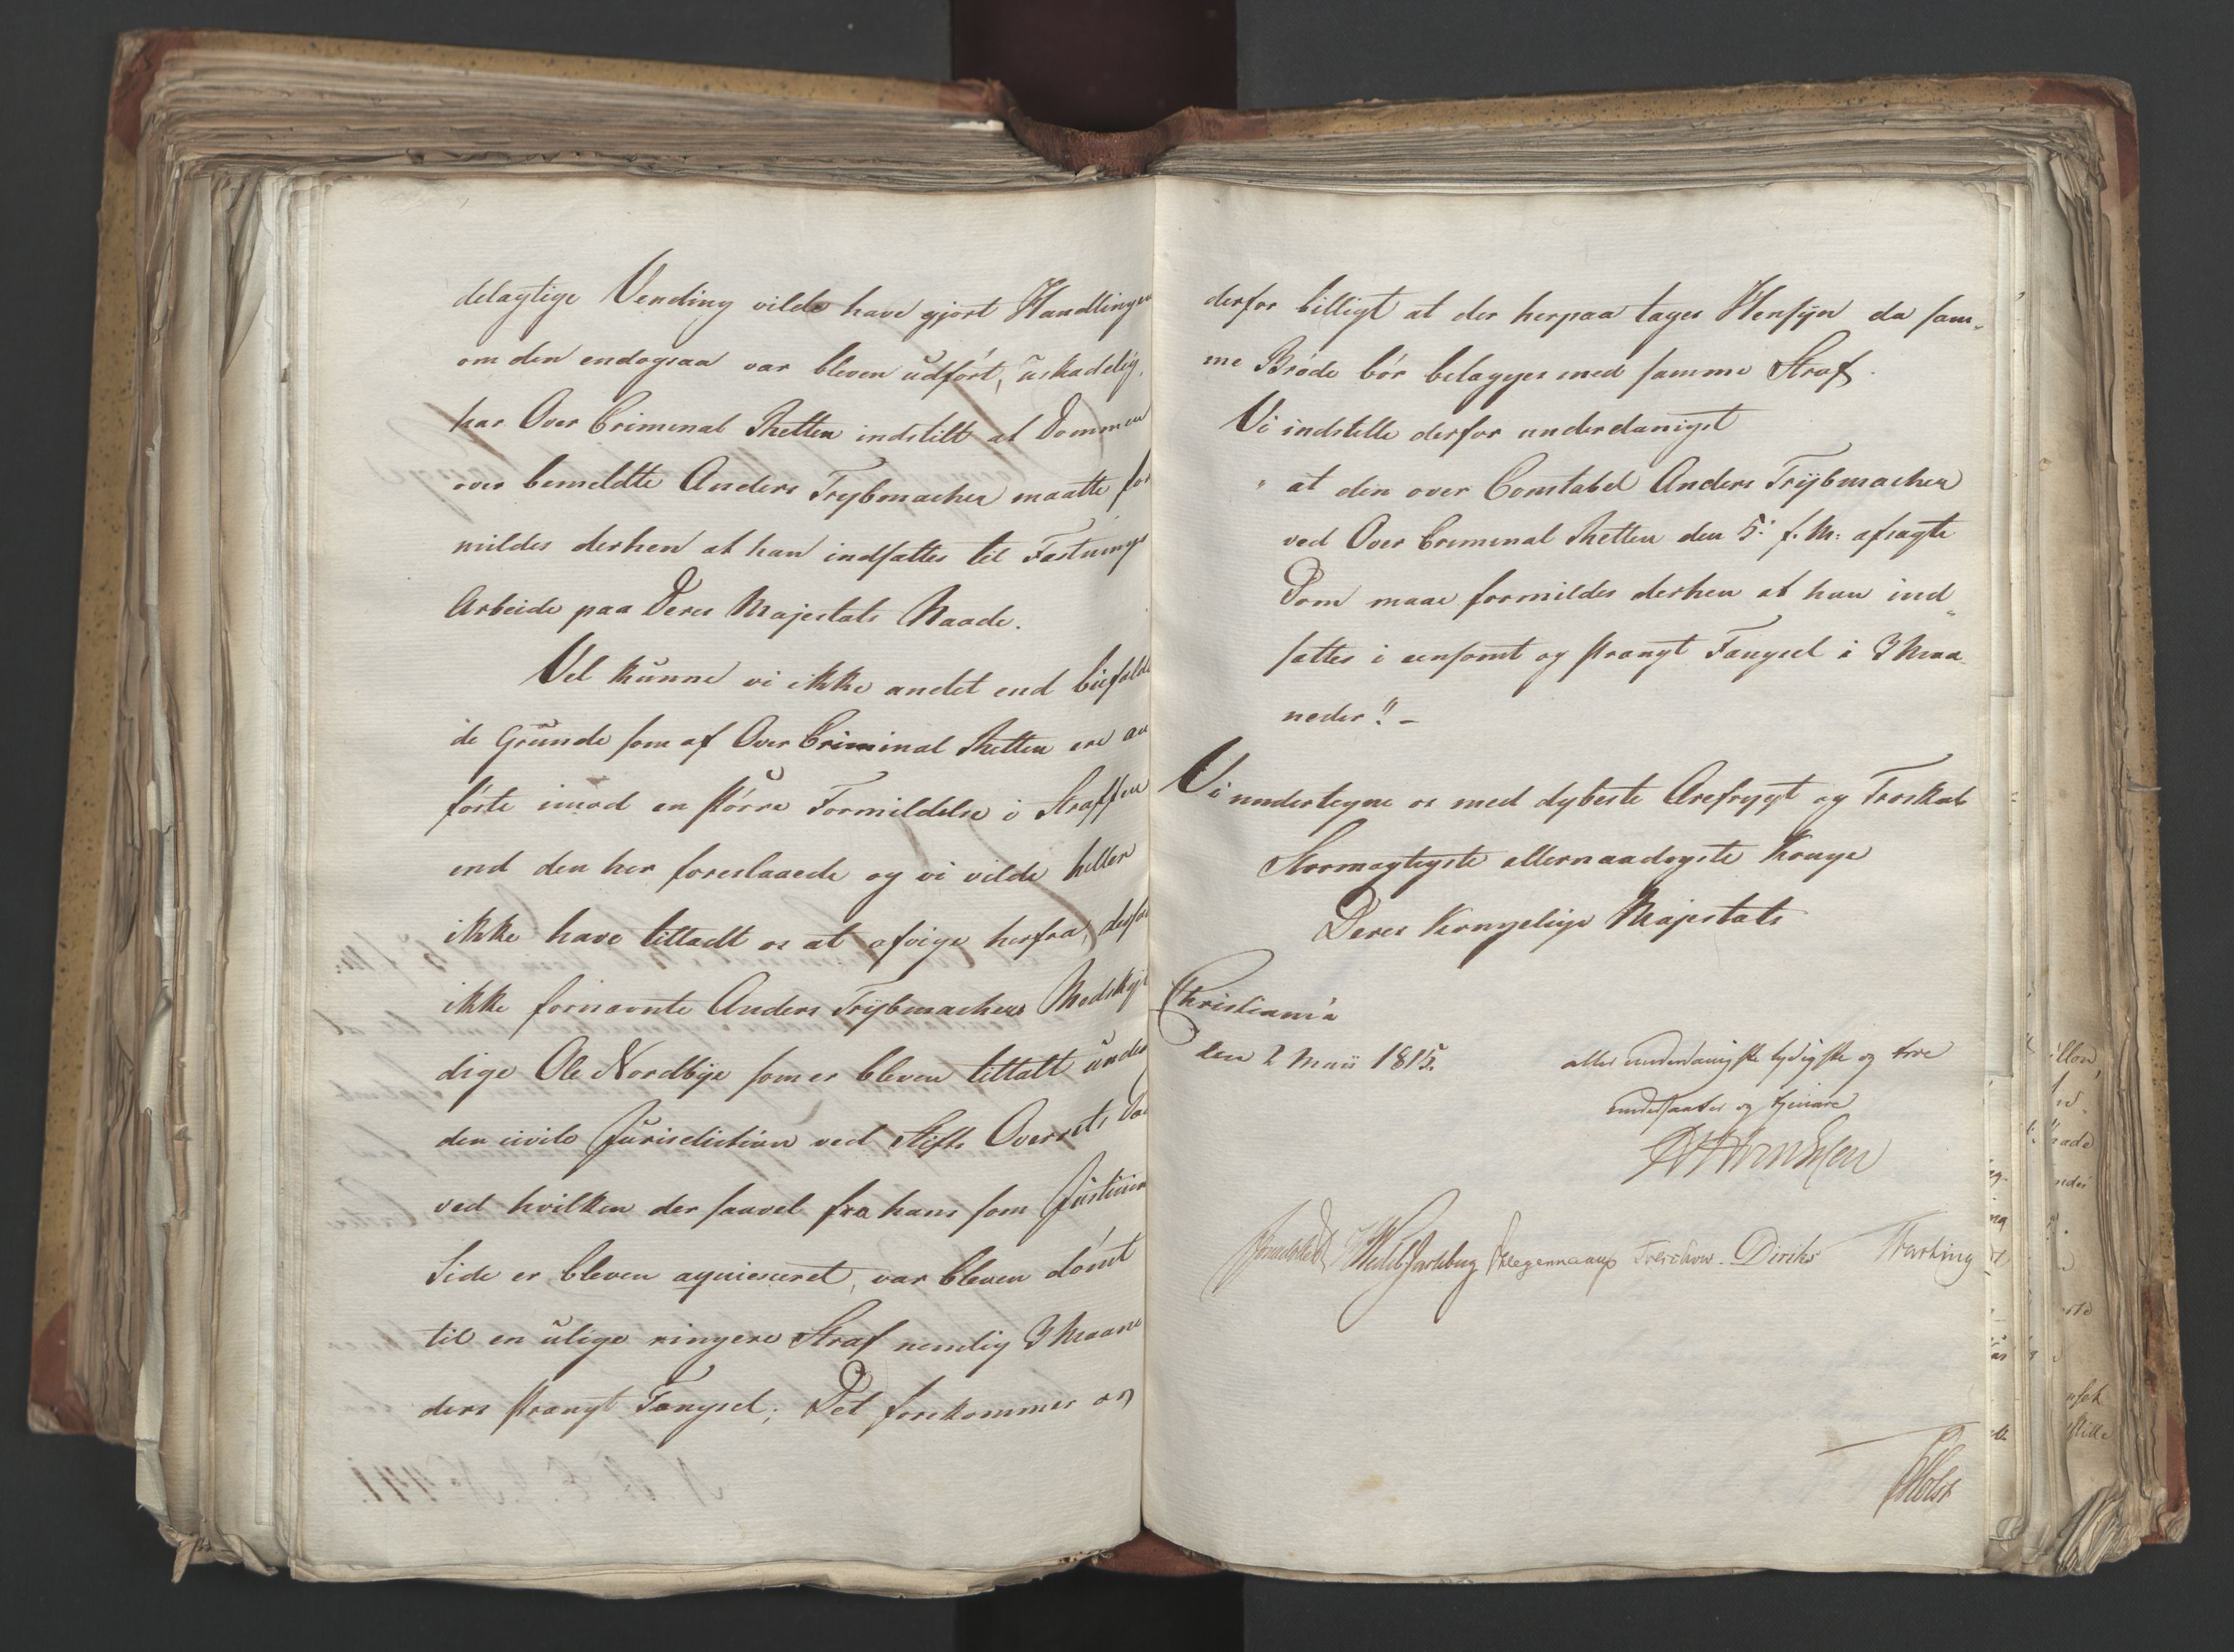 delagtige Vending vilde have gjort Handlingen
om den endogsaa var bleven udført, uskadelig,
har Over Criminal Retten indstillt at Dommen
over bemeldte Anders Trybmacher maatte for
mildes derhen at han indsattes til Festnings
Arbeide paa Deres Majestæts Naade.
Vel kunne vi ikke andet end biefalde
de Grunde som af Over Criminal Retten ere an
førte imod en større Formildelse i Straffen
end den her foreslaaede og vi vilde heller
ikke have tilladt os at afvige herfra, dersom
ikke fornævnte Anders Trybmachers Medskyl
dige Ole Nordbye som er bleven tiltalt under
den civile Jurisdiction ved Stifts Overrets Dom
ved hvilken der saavel fra hans som Justitiens
Side er bleven aquiesceret, var bleven dømt
til en ulige ringere Straf nemlig 3 Maane
ders strængt Fængsel; Det forekommer os
derfor billigt at der herpaa tages Hensyn da sam-
me Brøde bør belægges med samme Straf.
Vi indstille derfor underdanigst
" at den over Constabel Anders Trybmacher
ved Over Criminal Retten den 5: f. M: afsagte
Dom maae formildes derhen at han ind-
sættes i eensomt og strængt Fængsel i 3 Maa-
neder". -
Vi undertegne os med dybeste Ærefrygt og Troskab
Stormægtigste allernaadigste Konge
Deres Kongelige Majestæts
Christiania
den 2 Maii 1815.
allerunderdanigste lydigste og troe
undersaatter og tjenere
Sommerhielm Wedel Jarlsberg Hegermann Treschow. Diriks Thesting
Holst